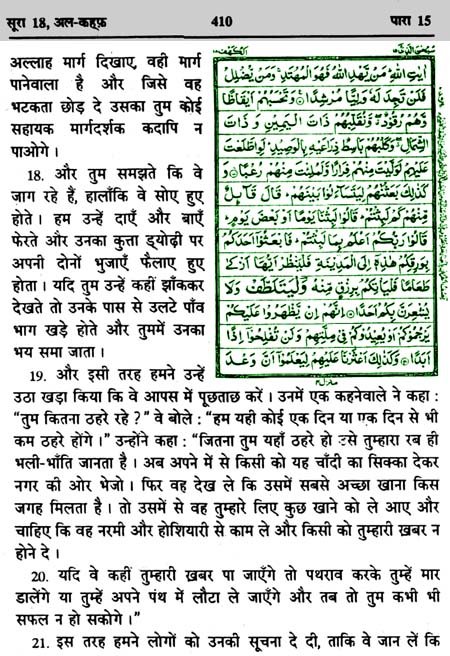 सूरा 18, अल-कहफ़ 410 पारा 15
अल्लाह मार्ग दिखाए, वही मार्ग
पानेवाला है और जिसे वह
भटकता छोड़ दे उसका तुम कोई
सहायक मार्गदर्शक कदापि न
पाओगे ।
18. और तुम समझते कि वे
जाग रहे हैं, हालाँकि वे सोए हुए
होते । हम उन्हें दाएँ और बाएँ
फेरते और उनका कुत्ता ड्योढ़ी पर
अपनी दोनों भुजाएँ फैलाए हुए
होता । यदि तुम उन्हें कहीं झाँककर
देखते तो उनके पास से उलटे पाँव
भाग खड़े होते और तुममें उनका
भय समा जाता ।
19. और इसी तरह हमने उन्हें
उठा खड़ा किया कि वे आपस में पूछताछ करें । उनमें एक कहनेवाले ने कहा :
“तुम कितना ठहरे रहे ?” वे बोले : “हम यही कोई एक दिन या एक दिन से भी
कम ठहरे होंगे ।” उन्होंने कहा : “जितना तुम यहाँ ठहरे हो उसे तुम्हारा रब ही
भली-भाँति जानता है । अब अपने में से किसी को यह चाँदी का सिक्का देकर
नगर की ओर भेजो । फिर वह देख ले कि उसमें सबसे अच्छा खाना किस
जगह मिलता है । तो उसमें से वह तुम्हारे लिए कुछ खाने को ले आए और
चाहिए कि वह नरमी और होशियारी से काम ले और किसी को तुम्हारी ख़बर न
होने दे ।
20. यदि वे कहीं तुम्हारी ख़बर पा जाएँगे तो पथराव करके तुम्हें मार
डालेंगे या तुम्हें अपने पंथ में लौटा ले जाएँगे और तब तो तुम कभी भी
सफल न हो सकोगे ।”
21. इस तरह हमने लोगों को उनकी सूचना दे दी, ताकि वे जान लें कि
الكهف ١٨
ايت الله من يهد الله فهو المهتد ومن يضلل
فلن تجد له وليا مرشدا وتحسبهم ايقاظا
وهم رقود ونقلبهم ذات اليمين وذات
الشمال وكلبهم باسط ذراعيه بالوصيد لو اطلعت
عليهم لوليت منهم فرارا ولملئت منهم رعبا
وكذلك بعثنهم ليتساءلوا بينهم قال قايل
منهم كم لبثتم قالوا لبثنا يوما او بعض يوم
قالوا ربكم اعلم بما لبثتم فابعثوا احدكم
بورقكم هذه الى المدينة فلينظر ايها ازكى
طعاما فلياتكم برزق منه وليتلطف ولا
يشعرن بكم احدا انهم ان يظهروا عليكم
يرجموكم او يعيدوكم في ملتهم ولن تفلحوا اذا
ابدا وكذلك اعثرنا عليهم ليعلموا ان وعد